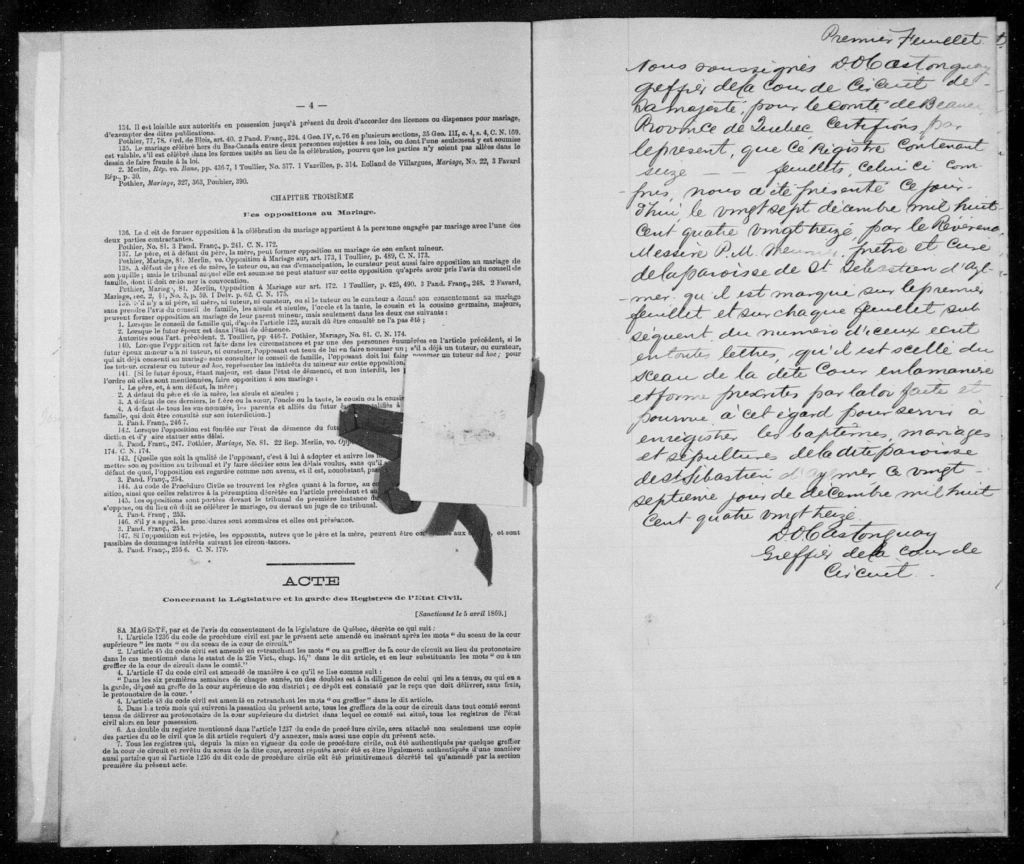 — 4 —
134. Il est loisible aux autorités en possession jusqu'à présent du droit d'accorder des licences ou dispenses pour mariage,
d'exempter des dites publications.
Pothier, 77, 78. Ord. de Blois, art. 40. 2 Pand. Franç., 324. 4 Geo. IV, c. 76 en plusieurs sections, 35 Geo. III, c. 4, s. 4, C. N. 169.
135. Le mariage célébré hors du Bas-Canada entre deux personnes sujettes à ses lois, ou dont l'une seulement y est soumise
est valable, s'il est célébré dans les formes usités au lieu de la célébration, pourvu que les parties n'y soient pas allées dans le
dessein de faire fraude à la loi.
2. Merlin, Rép. vo. Bans, pp. 436-7, 1 Toullier, No. 577. 1 Vazeilles, p. 314. Rolland de Villargues, Mariage, No. 22, 3 Favard
Rép., p. 30.
Pothier, Mariage, 327, 363, Pouhier, 390.
CHAPITRE TROISIÈME
Des oppositions au Mariage.
136. Le droit de former opposition à la célébration du mariage appartient à la personne engagée par mariage avec l'une des
deux parties contractantes.
Pothier, No. 81. 3 Pand. Franç., p. 241. C. N. 172.
137. Le père, et à défaut du père, la mère, peut former opposition au mariage de son enfant mineur.
Pothier, Mariage, 81. Merlin, vo. Opposition à Mariage sur art. 173, 1 Toullier, p. 489, C. N. 173.
138. A défaut de père et de mère, le tuteur ou, au cas d'émancipation, le curateur peut aussi faire opposition au mariage de
son pupille; mais le tribunal auquel elle est soumise ne peut statuer sur cette opposition qu'après avoir pris l'avis du conseil de
famille, dont il doit ordonner la convocation.
Pothier, Mariag., 81. Merlin, Opposition à Mariage sur art. 172. 1 Toullier, p. 425, 490. 3 Pand. Franç., 248. 2 Favard,
Mariage, sec. 2, No. 3, p. 59. 1 Delv. p. 62. C. N. 175.
139. S'il n'y a ni père, ni mère, ni tuteur, ni curateur, ou si le tuteur ou le curateur a donné son consentement au mariage
sans prendre l'avis du conseil de famille, les aïeuls et aïeules, l'oncle et la tante, le cousin et la cousine germains, majeurs,
peuvent former opposition au mariage de leur parent mineur, mais seulement dans les deux cas suivants:
1. Lorsque le conseil de famille qui, d'après l'article 122, aurait dû être consulté ne l'a pas été;
2. Lorsque le futur époux est dans l'état de démence.
Autorités sous l'art. précédent. 2. Toullier, pp 486-7. Pothier, Mariage, No. 81. C. N. 174.
140. Lorsque l'opposition est faite dans les circonstances et par une des personnes énumérées en l'article précédent, si le
futur époux mineur n'a ni tuteur, ni curateur, l'opposant est tenu de lui en faire nommer un; s'il a déjà un tuteur, ou curateur,
qui ait déjà consenti au mariage sans consulter le conseil de famille, l'opposant doit lui faire nommer un tuteur ad hoc; pour
les tuteur, curateur ou tuteur ad hoc, représenter les intérêts du mineur sur cette opposition.
141. [Si le futur époux, étant majeur, est dans l'état de démence, et non interdit, les
l'ordre où elles sont mentionnées, faire opposition à son mariage:
1. Le père, et, à son défaut, la mère;
2. A défaut du père et de la mère, les aïeuls et aïeules;
3. A défaut de ces derniers, le frère ou la sœur, l'oncle ou la tante, le cousin ou la cousine
4. A défaut de tous les sus-nommés, les parents et alliés du futur
famille, qui doit être consulté sur son interdiction.]
3. Pand. Franç., 246-7.
142. Lorsque l'opposition est fondée sur l'état de démence du futur
diction et d'y faire statuer sans délai.
3. Pand. Franç., 247. Pothier, Mariage, No. 81. 22 Rep. Merlin, vo.
174. C. N. 174.
143. [Quelle que soit la qualité de l'opposant, c'est à lui à adopter et suivre les
mettre son opposition au tribunal et l'y faire décider sous les délais voulus, sans qu'il
défaut de quoi, l'opposition est regardée comme non avenu, et il est, nonobstant,
3. Pand. Franç., 254.
144. Au code de Procédure Civile se trouvent les règles quant à la forme, au
sition, ainsi que celles relatives à la péremption décrétées en l'article précédent et
145. Les oppositions sont portées devant le tribunal de première instance du
s'oppose, ou du lieu où doit se célébrer le mariage, ou devant un juge de ce tribunal.
3. Pand. Franç., 253.
146. S'il y a appel, les procédures sont sommaires et elles ont préséance.
3. Pand. Franç., 253.
147. Si l'opposition est rejetée, les opposants, autres que le père et la mère, peuvent être aux et sont
passibles de dommages intérêts suivant les circonstances.
3. Pand. Franç., 255 6. C. N. 179.
ACTE
Concernant la Législature et la garde des Registres de l'Etat Civil.
[Sanctionné le 5 avril 1869.]
SA MAGESTÉ, par et de l'avis du consentement de la législature de Québec, décrète ce qui suit:
1. L'article 1236 du code de procédure civil est par le présent acte amendé en insérant après les mots "du sceau de la cour
supérieure" les mots "ou du sceau de la cour de circuit."
2. L'article 45 du code civil est amendé en retranchant les mots "ou au greffier de la cour de circuit au lieu du protonotaire
dans le cas mentionné dans le statut de la 25e Vict., chap. 16," dans le dit article, et en leur substituants les mots "ou à un
greffier de la cour de circuit dans le comté."
4. L'article 47 du code civil est amendé de manière à ce qu'il se lise comme suit:
"Dans les six premières semaines de chaque année, un des doubles est à la diligence de celui qui les a tenus, ou qui en a
la garde, déposé au greffe de la cour supérieure de son district; ce dépôt est constaté par le reçu que doit délivrer, sans frais,
le protonotaire de la cour."
4. L'article 48 du code civil est amendé en retranchant les mots "ou greffier" dans le dit article.
5. Dans les trois mois qui suivront la passation du présent acte, tous les greffiers de la cour de circuit dans tout comté seront
tenus de délivrer au protonotaire de la cour supérieure du district dans lequel ce comté est situé, tous les registres de l'état
civil alors en leur possession.
6. Au double du registre mentionné dans l'article 1237 du code de procédure civile, sera attaché non seulement une copie
des parties du code civile que le dit article requiert d'y annexer, mais aussi une copie du présent acte.
7. Tous les registres qui, depuis la mise en vigueur du code de procédure civile, ont été authentiqués par quelque greffier
de la cour de circuit et revêtu du sceau de la dite cour, seront réputés avoir été et être légalement authentiqués d'une manière
aussi parfaite que si l'article 1236 du dit code de procédure civile eût été primitivement décrété tel qu'amendé par la section
première du présent acte.
Premier Feuillet
Nous soussignés D O Castonguay
greffier de la Cour de Circuit de
Sa majesté, pour le comté de Beauce
Province de Québec Certifions par
le présent, que ce Régistre Contenant
seize — — feuillets, celui ci com-
-pris, nous a été présenté ce jour-
d'hui, le vingt sept décembre mil huit
cent quatre vingt treize, par le Révérend
Messire P. M. prêtre et Curé
de la paroisse de St Sébastien d'Ayl-
mer, qu'il est marqué sur le premier
feuillet et sur chaque feuillet sub-
séquent du numéro d'iceux écrit
en toutes lettres, qu'il est scellé du
sceau de la dite Cour en la manière
et forme prescrites par la loi faite et
pourvue à cet égard pour servir à
enregistrer les baptêmes, mariages
et sépultures de la dite paroisse
de St Sébastien d'Aylmer ce vingt-
septième jour de décembre mil huit
Cent quatre vingt treize
D O Castonguay
Greffier de la cour de
Circuit.